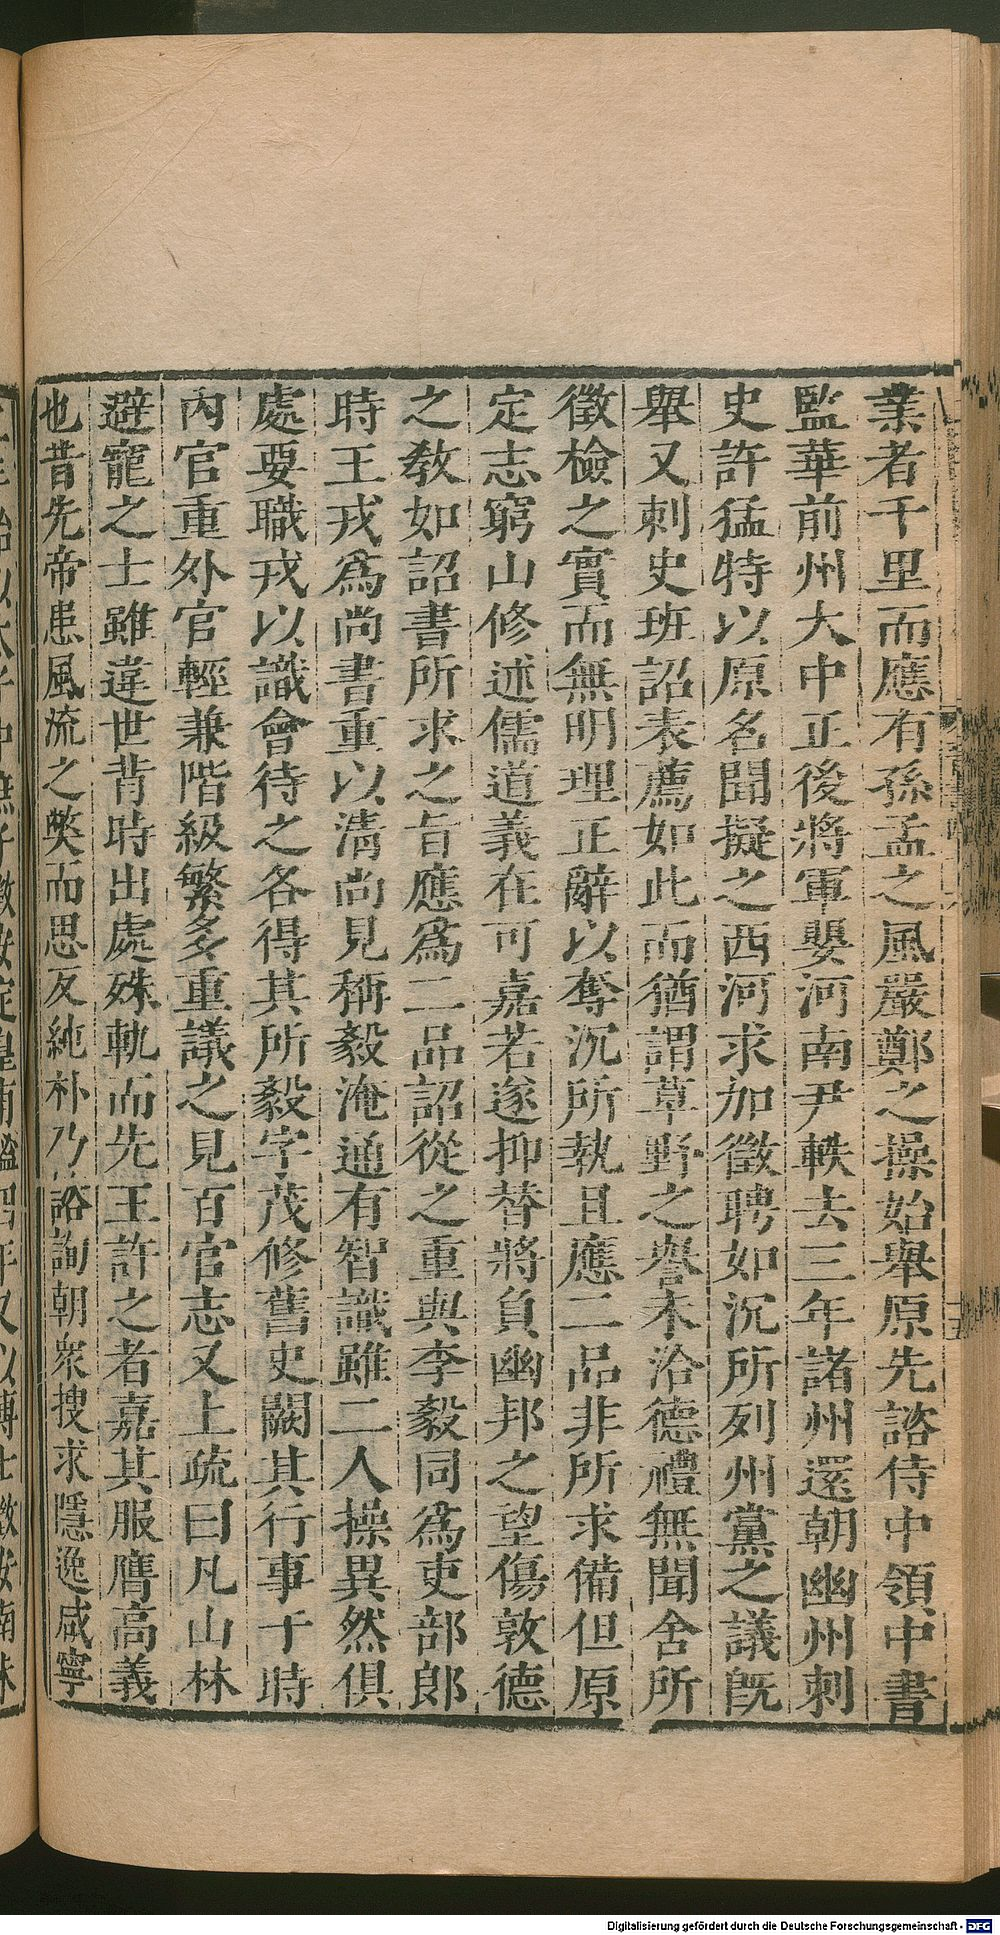 業者千里而應有孫孟之風嚴鄭之操始舉原先諮侍中領中書
監華前州大中正後將軍嬰河南尹軼去三年諸州還朝幽州刺
史許猛特以原名聞擬之西河求加徵聘如沉所列州黨之議旣
舉又刺史班詔表薦如此而猶謂草野之譽未洽德禮無聞舍所
徵檢之實而無明理正辭以奪沉所執且應二品非所求備但原
定志窮山修述儒道義在可嘉若遂抑替將負幽邦之望傷敦德
之敎如詔書所求之旨應爲二品詔從之重與李毅同爲吏部郎
時王戎爲尚書重以淸尚見稱毅淹通有智識雖二人操異然俱
處要職戎以識會待之各得其所毅字茂修舊史闕其行事于時
內官重外官輕兼階級繁多重議之見百官志又上疏曰凡山林
避寵之士雖違世背時出處殊軌而先王許之者嘉其服膺高義
也昔先帝患風流之弊而思反純朴乃諮詢朝衆搜求隱逸咸寧
Digitalisierung gefördert durch die Deutsche Forschungsgemeinschaft - DFG